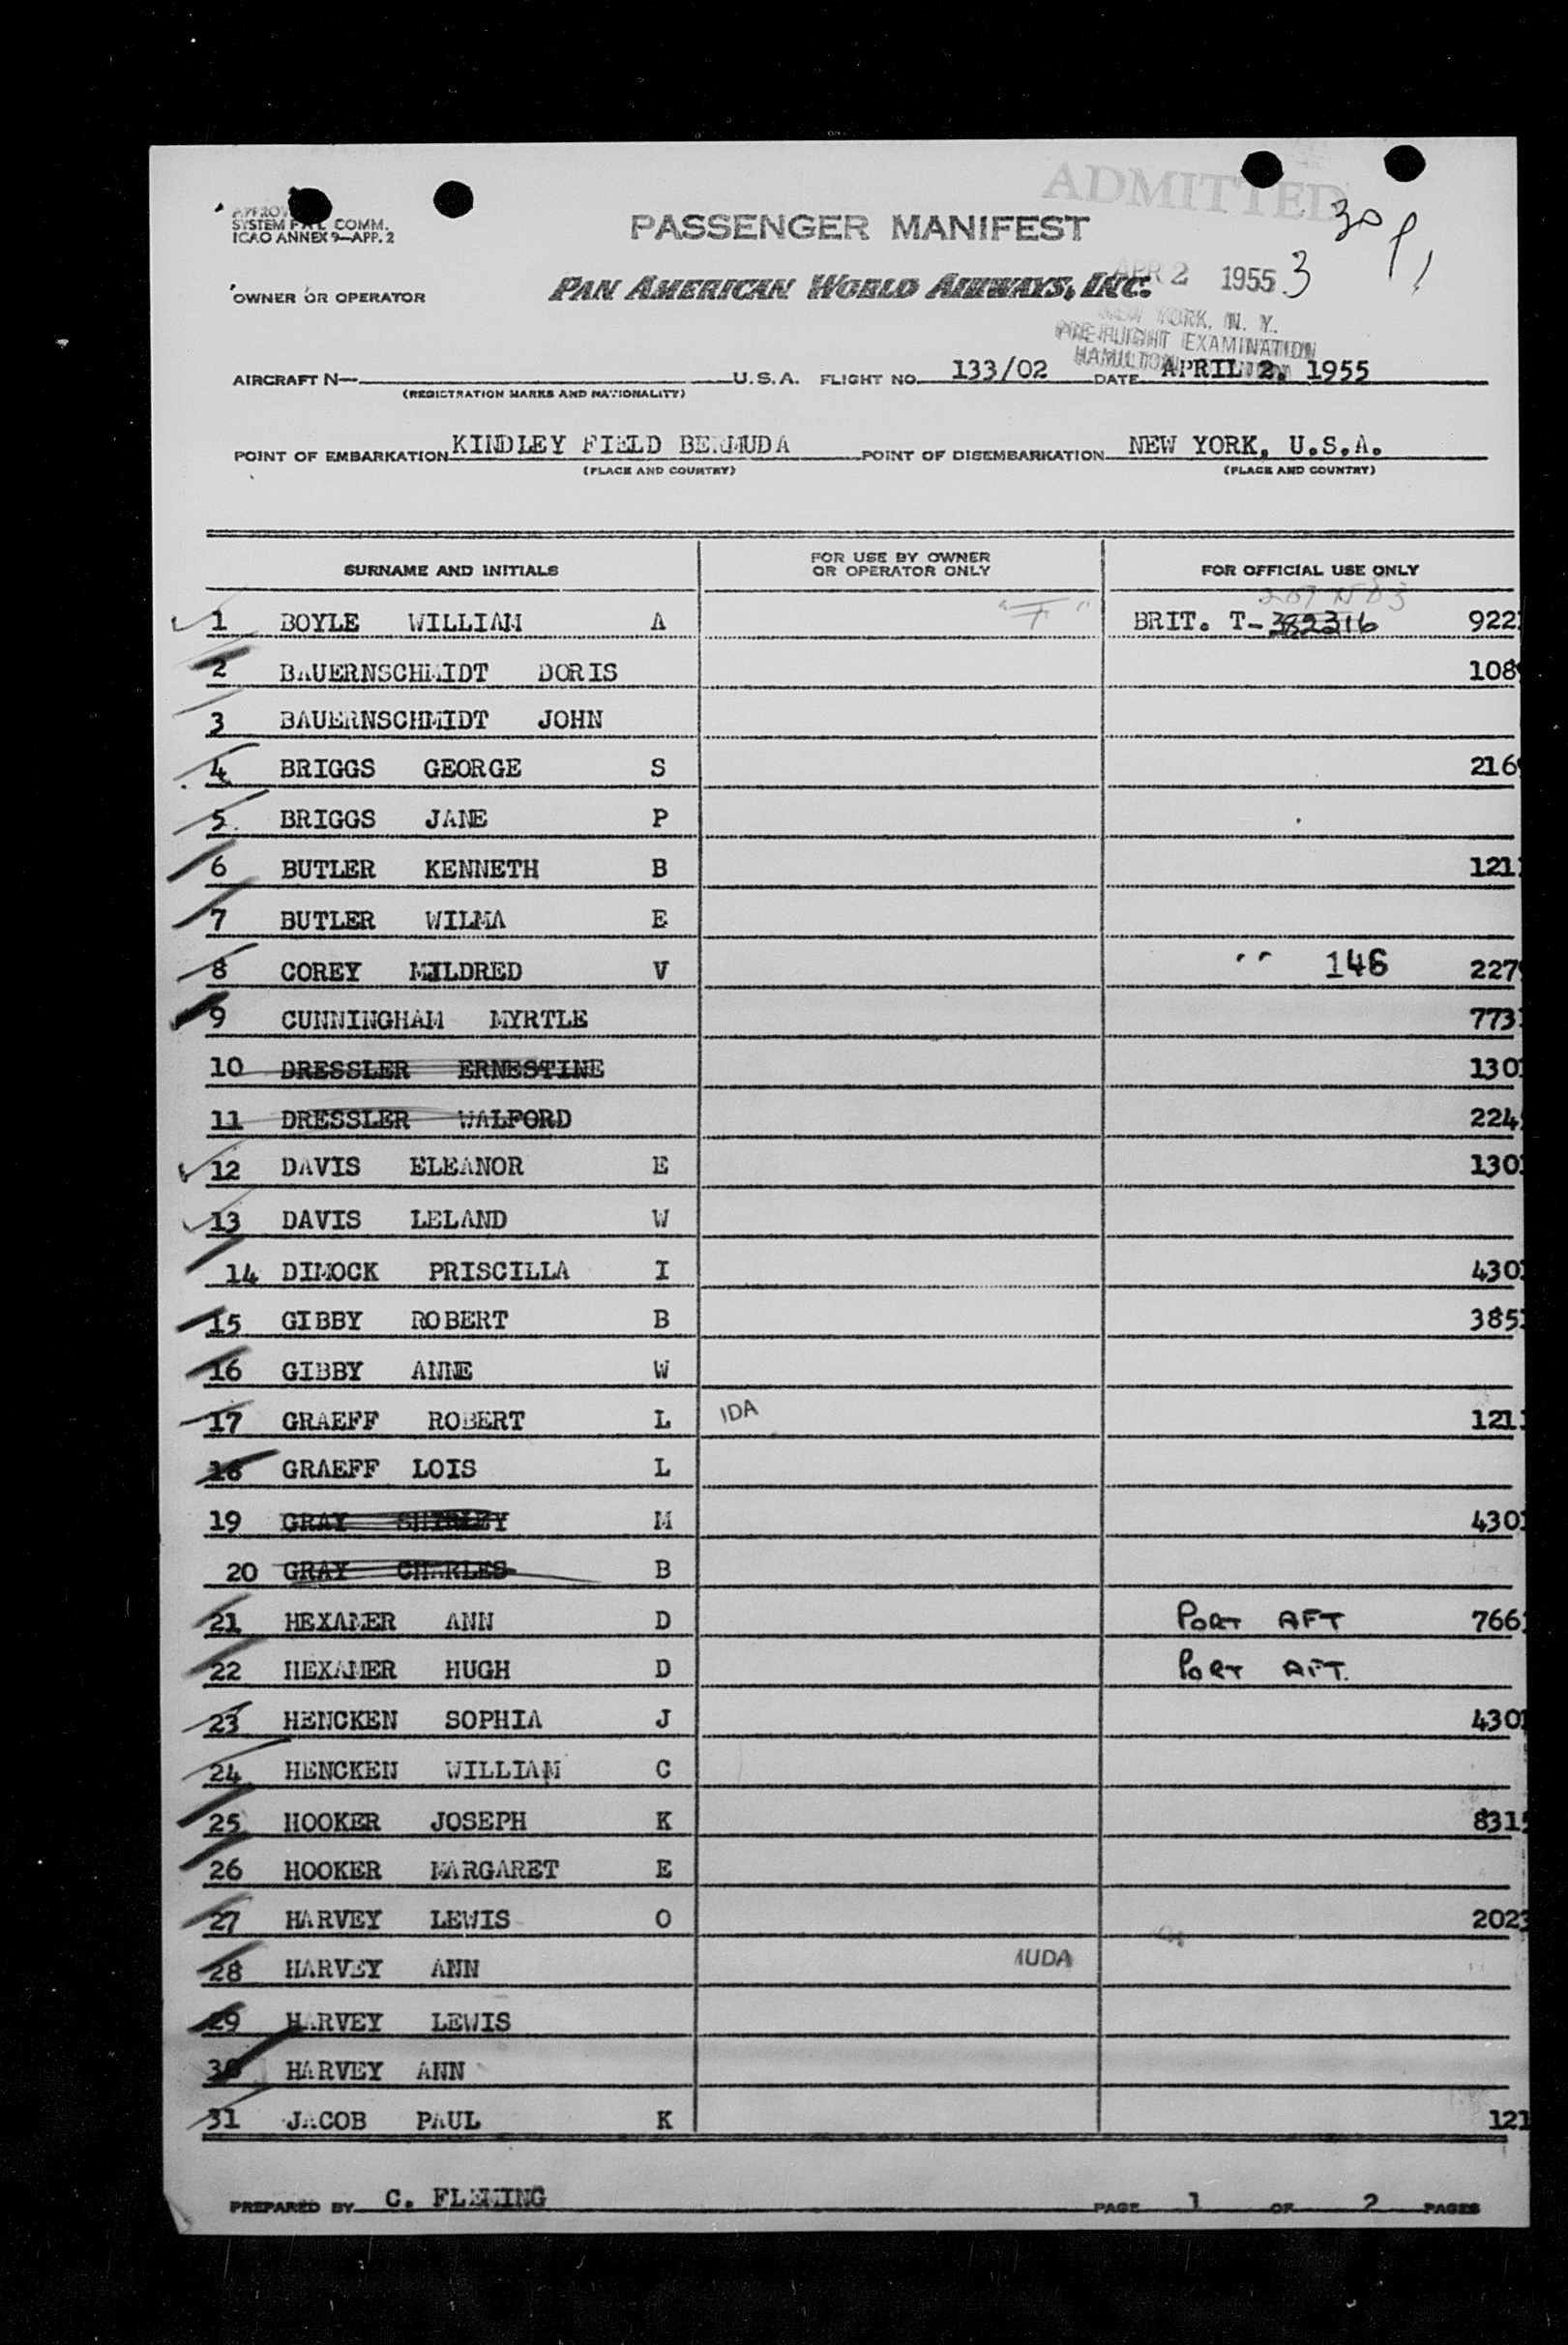 ADMITTED
SYSTEM COMM.
ICAO ANNEX 9—APP. 2
PASSENGER MANIFEST
30
OWNER OR OPERATOR
PAN AMERICAN WORLD AIRWAYS, INC.
APR 2 1955 3
YORK, N. Y.
EXAMINATION
HAMILTON
AIRCRAFT N— U.S.A. FLIGHT NO. 133/02 DATE APRIL 2, 1955
(REGISTRATION MARKS AND NATIONALITY)
POINT OF EMBARKATION KINDLEY FIELD BERMUDA POINT OF DISEMBARKATION NEW YORK, U.S.A.
(PLACE AND COUNTRY) (PLACE AND COUNTRY)
SURNAME AND INITIALS FOR USE BY OWNER OR OPERATOR ONLY FOR OFFICIAL USE ONLY
1 BOYLE WILLIAM A BRIT. T-382316 922
2 BAUERNSCHMIDT DORIS 108
3 BAUERNSCHMIDT JOHN
4 BRIGGS GEORGE S 216
5 BRIGGS JANE P
6 BUTLER KENNETH B 121
7 BUTLER WILMA E
8 COREY MILDRED V 146 227
9 CUNNINGHAM MYRTLE 773
10 DRESSLER ERNESTINE 130
11 DRESSLER WALFORD 224
12 DAVIS ELEANOR E 130
13 DAVIS LELAND W
14 DIMOCK PRISCILLA I 430
15 GIBBY ROBERT B 385
16 GIBBY ANNE W
17 GRAEFF ROBERT L IDA 121
18 GRAEFF LOIS L
19 GRAY SHIRLEY M 430
20 GRAY CHARLES B
21 HEXAMER ANN D PORT AFT 766
22 HEXAMER HUGH D PORT AFT.
23 HENCKEN SOPHIA J 430
24 HENCKEN WILLIAM C
25 HOOKER JOSEPH K 831
26 HOOKER MARGARET E
27 HARVEY LEWIS O 202
28 HARVEY ANN MUDA
29 HARVEY LEWIS
30 HARVEY ANN
31 JACOB PAUL K 121
PREPARED BY C. FLEMING PAGE 1 OF 2 PAGES